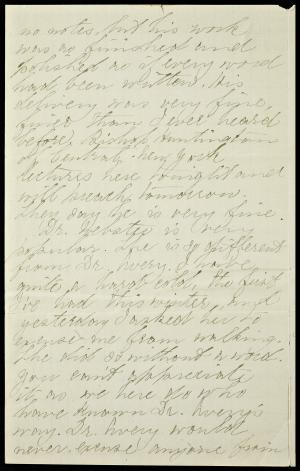 no notes, but his work
was as finished and
polished as if every word
had been written. His
delivery was very fine,
finer than I ever heard
before. Bishop Huntington
of Central New York
lectures here to-night and
will preach tomorrow.
They say he is very fine.
Dr. Webster is very
popular. She is so different
from Dr. Avery. I have
quite a hard cold, the first
I've had this winter, and
yesterday I asked her to
excuse me from walking.
She did so without a word.
You can't appreciate
it, as we here do who
have known Dr. Avery's
way. Dr. Avery would
never excuse anyone from